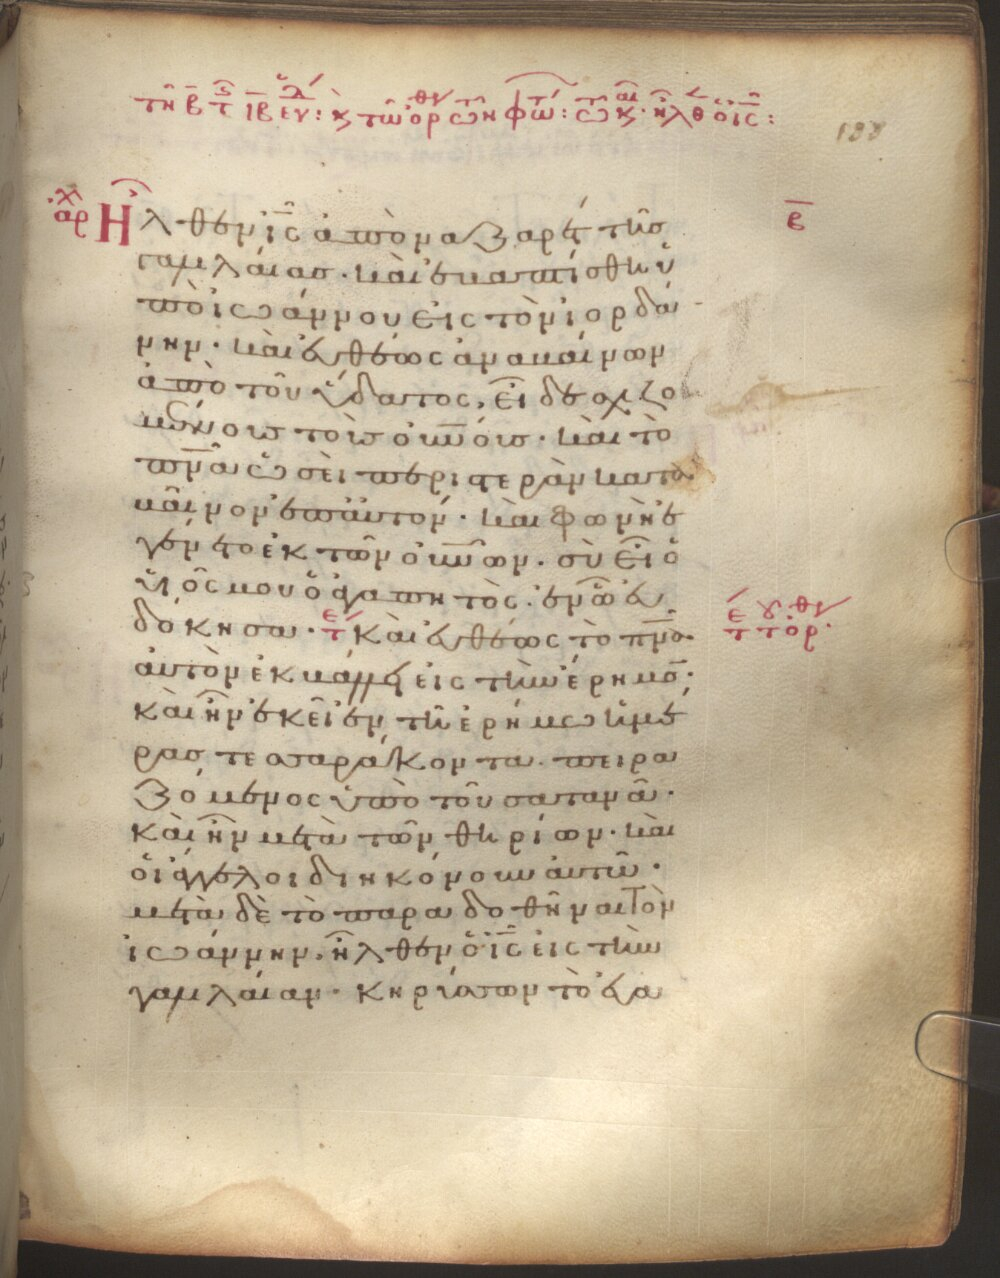 τῆ β τ ιβ ευ: κ τῶ ὀρ τῶν φώτ: τῶ κ ἦλθ ὁ ις:
188
ἀρχ
β
Ἦλθεν ις ἀπὸ ναζαρετ τῆσ
γαλιλαίασ· καὶ ἐβαπτίσθη ὑ
πὸ ἰωάννου εἰς τὸν ἰορδά
νην· καὶ ἐυθέως ἀναβαίνων
ἀπὸ τοῦ ὕδατος, εἶδε σχιζο
μένουσ τοὺσ οὐνούσ· καὶ τὸ
πνᾶ ὡσεὶ περιστερὰν κατα
βαῖνον ἐπ αὐτόν· καὶ φωνὴ ἐ
γένετο ἐκ τῶν οὐνῶν· σὺ εἶ ὁ
υἱός μου ὁ ἀγαπητὸς· ἐν ᾧ ἐυ
δόκησα· τε Καὶ ἐυθέως τὸ πνᾶ
αὐτὸν ἐκβάλλει εἰς τὴν ἔρημον·
καὶ ἦν ἐκεῖ ἐν τῆ ἐρήμω ἡμέ
ρασ τεσσαράκοντα· πειρα
ζόμενος ὑπὸ τοῦ σατανᾶ·
καὶ ἦν μετὰ τῶν θηρίων· καὶ
οἱ ἄγγελοι διηκόνουν αὐτῶ·
μετὰ δὲ τὸ παραδοθῆναι Τὸν
ἰωάννην, ἦλθεν ὁ ις εἰς τὴν
γαλιλαίαν· κηρύσσων τὸ ἐυα